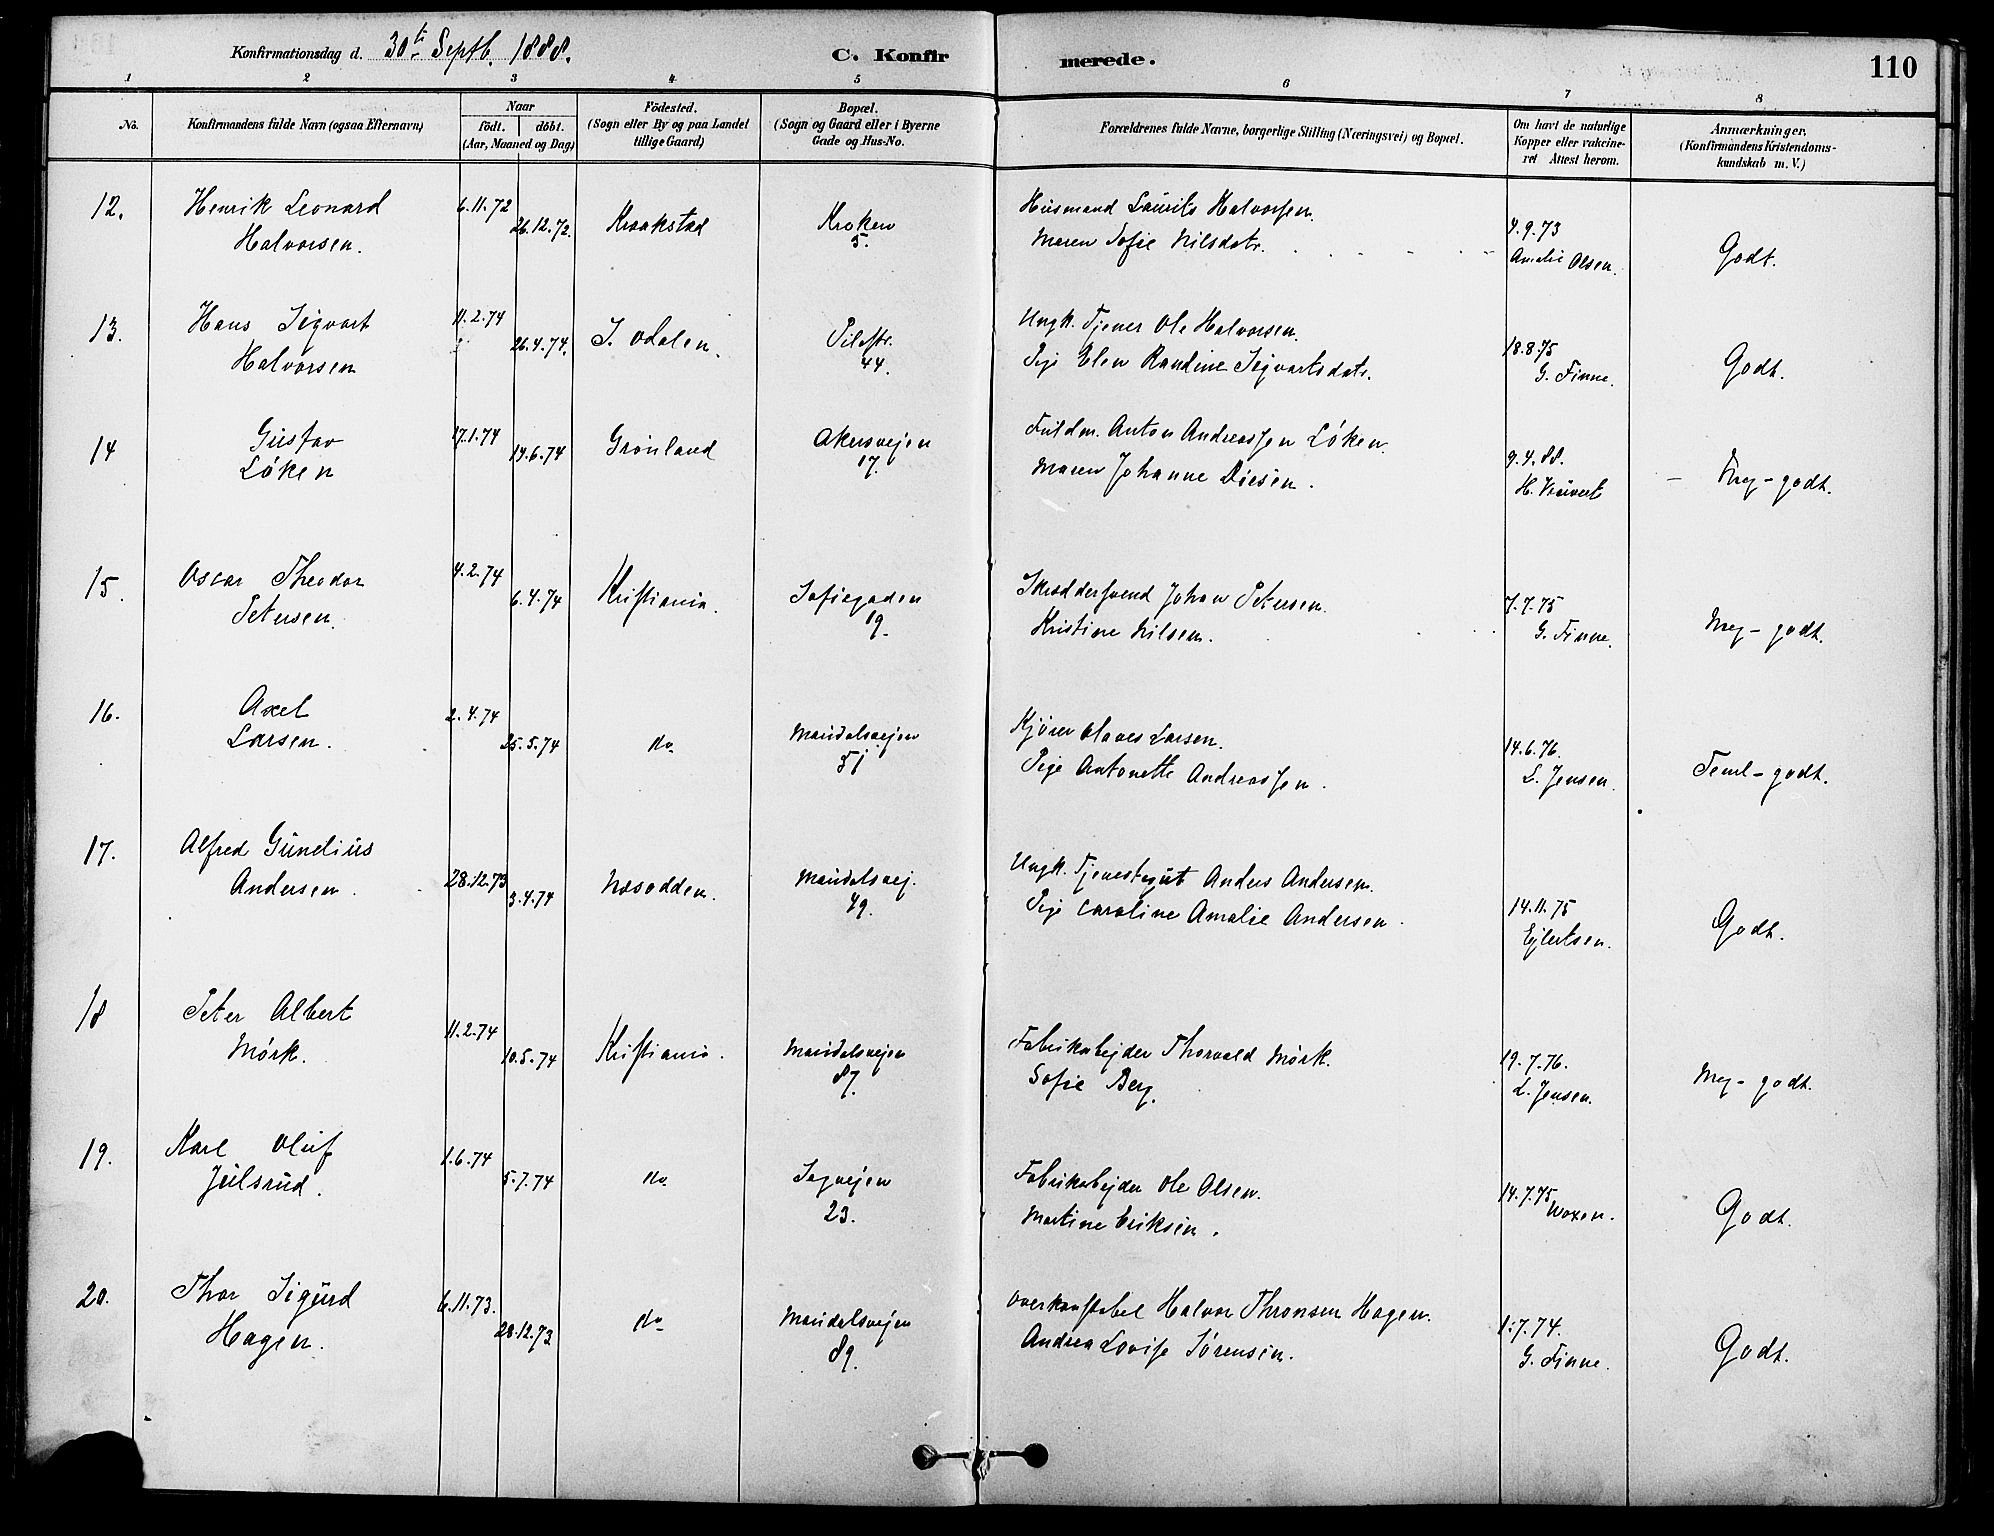 Konfirmationsdag d. 30te Septb. 1888.
C. Konfir merede.
110
1 2 3 4 5 6 7 8
No.
Konfirmandens fulde Navn (ogsaa Efternavn)
Naar
födt. döbt.
(Aar, Maaned og Dag)
Födested.
(Sogn eller By og paa Landet
tillige Gaard)
Bopæl.
(Sogn og Gaard eller i Byerne
Gade og Hus-No.
Forældrenes fulde Navne, borgerlige Stilling (Næringsvei) og Bopæl.
Om havt de naturlige
Kopper eller vakcine-
ret Attest herom.
Anmærkninger.
(Konfirmandens Kristendoms-
kundskab m. V.)
12. Henrik Leonard 6.11.72 Kraakstad Kroken Husmand Laurits Halvorsen. 4.9.73
Halvorsen. 26.12.72. 5. Maren Sofie Nilsdatr. Amalie Olsen. Godt.
13. Hans Sigvart 11.2.74 S. Odalen. Pilestr. Ungk. Tjener Ole Halvorsen. 18.8.75
Halvorsen 26.4.74. 44. Pige Elen Randine Sigvartsdatr. G. Finne. Godt.
14 Gustav 17.1.74 Grönland Akersvejen Fuldm. Anton Andreassen Løken. 9.4.88.
Løken 14.6.74 17. Maren Johanne Diesen. Meg-godt.
15. Oscar Theodor 4.2.74 Kristiania. Sofiegaden Skræddersvend Johan Petersen. 7.7.75
Petersen. 6.4.74 19. Kristine Nilsen. G. Finne. Meg-godt.
16. Axel 2.4.74 do. Maridalsvejen Kjører Olaves Larsen. 14.6.76.
Larsen. 25.5.74 51 Pige Antonette Andreassen. L. Jensen. Teml-godt.
17. Alfred Gunelius 28.12.73 Næsodden. Maridalsvej. Ungk. Tjenestegut Anders Andersen. 14.11.75
Andersen. 3.4.74 49. Pige Caroline Amalie Andersen. Ejlertsen. Godt.
18 Peter Albert 11.2.74 Kristiania. Maridalsvejen Fabrikarbejder Thorvald Mörk. 19.7.76.
Mörk. 10.5.74 87. Sofie Berg. L. Jensen. Meg-godt.
19. Karl Oluf 1.6.74 do. Sagvejen Fabrikarbejder Ole Olsen. 14.7.75
Julsrud. 5.7.74 23. Martine Eriksen. Woxen. Godt.
20. Thor Sigurd 6.11.73. do. Maridalsvejen Overkonstabel Halvor Thronsen Hagen. 1.7.74.
Hagen. 28.12.73 89. Andrea Lovise Sörensen. G. Finne. Godt.